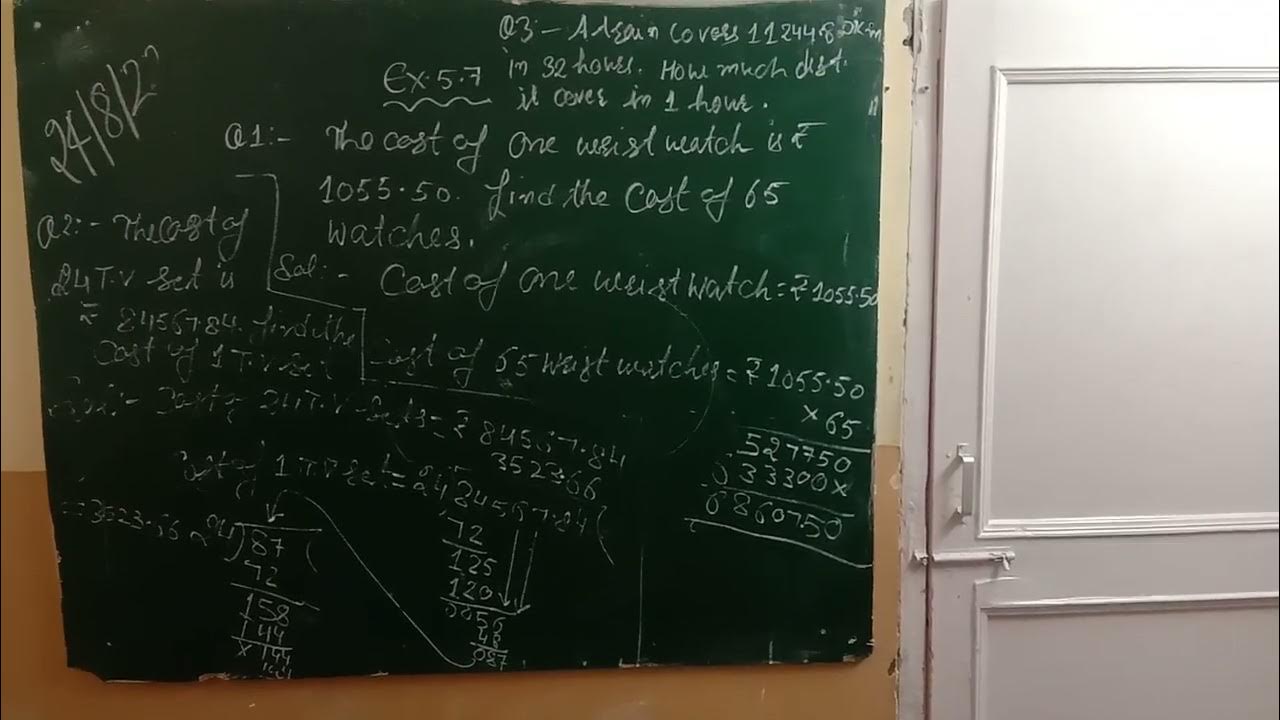 24/8/2
Ex. 5.7
Q3:- A train covers 11244.80km
in 32 hours. How much dist.
it cover in 1 hour.
Q1:- The cost of one wrist watch is ₹
1055.50. find the cost of 65
watches.
Sol:- Cost of one wrist watch = ₹1055.50
Cost of 65 wrist watches = ₹1055.50
×65
527750
633300×
6860750
Q2:- The cost of
24 T.V set is
₹ 84567.84. find the
Cost of 1 T.V set
Cost of 24 T.V sets = ₹ 84567.84
Cost of 1 T.V set = 24)84567.84(
352366
72
125
120
0056
48
087
= 3523.66
24)87(
72
158
144
×144